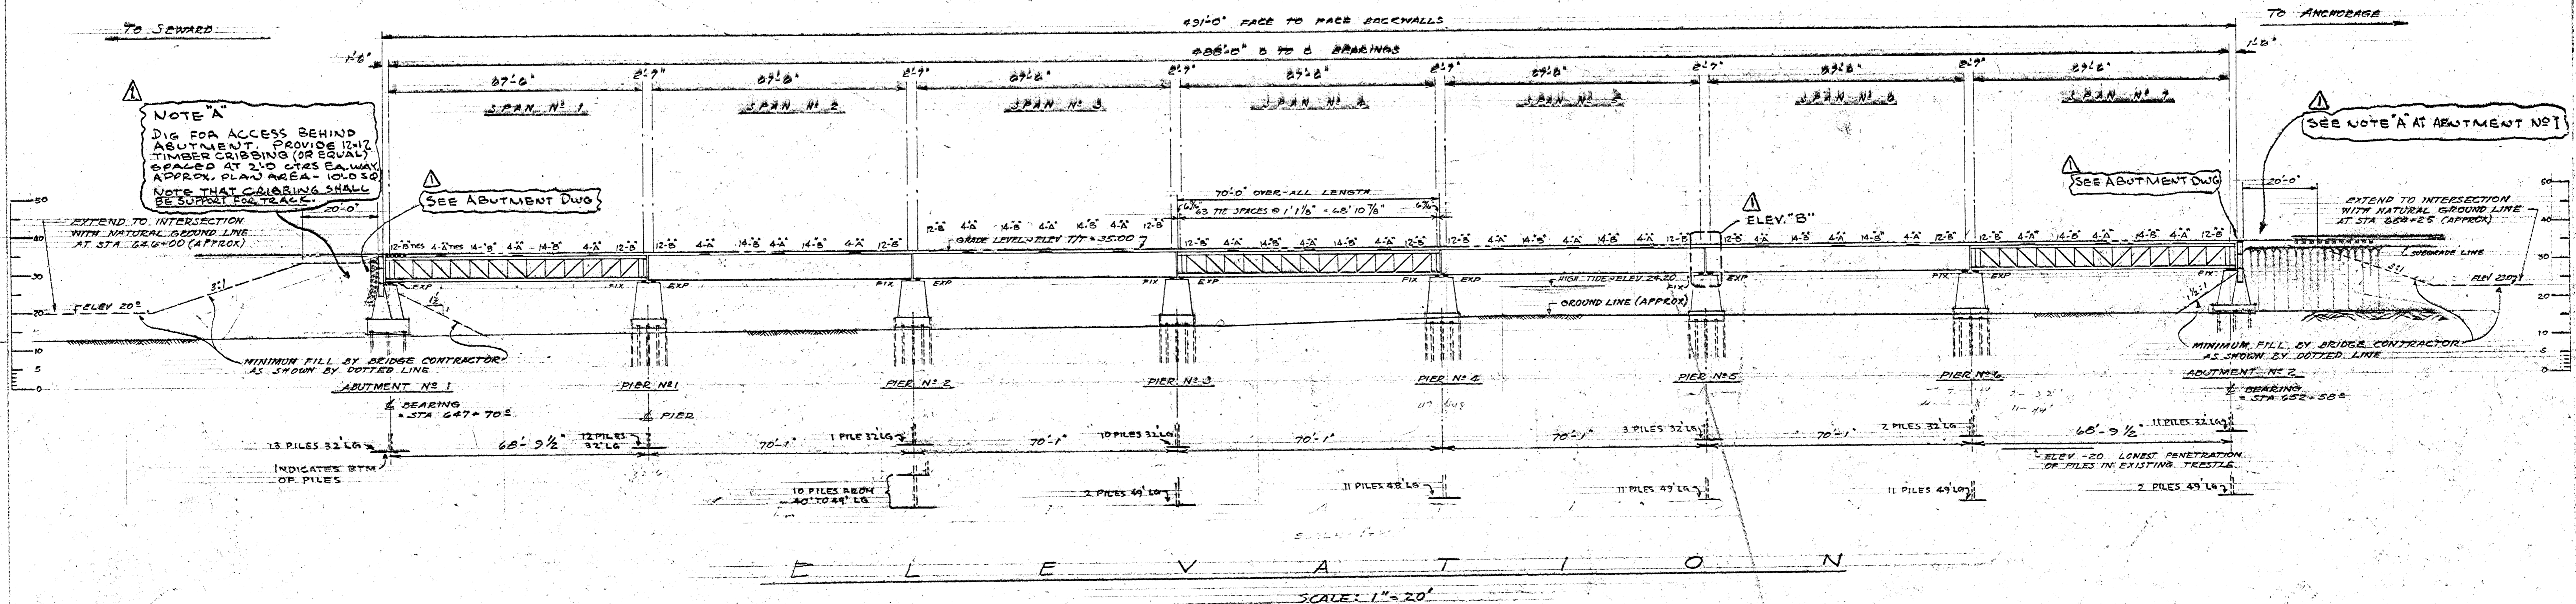 TO SEWARD
491'-0" FACE TO FACE BACKWALLS
TO ANCHORAGE
488'-0" C TO C BEARINGS
1'-6"
1'-6"
2'-7"
2'-7"
2'-7"
2'-7"
2'-7"
2'-7"
SPAN Nº 1
SPAN Nº 2
SPAN Nº 3
SPAN Nº 4
SPAN Nº 5
SPAN Nº 6
SPAN Nº 7
NOTE "A"
DIG FOR ACCESS BEHIND
ABUTMENT. PROVIDE 12×12
TIMBER CRIBBING (OR EQUAL)
SPACED AT 2'-0 CTRS EA. WAY
APPROX. PLAN AREA - 10'-0 SQ
NOTE THAT CRIBBING SHALL
BE SUPPORT FOR TRACK.
SEE NOTE "A" AT ABUTMENT Nº 1
SEE ABUTMENT DWG
SEE ABUTMENT DWG
20'-0"
20'-0"
EXTEND TO INTERSECTION
WITH NATURAL GROUND LINE
AT STA 646+00 (APPROX)
EXTEND TO INTERSECTION
WITH NATURAL GROUND LINE
AT STA 654+25 (APPROX)
70'-0" OVER-ALL LENGTH
63 TIE SPACES @ 1' 1 1/8" = 68' 10 7/8"
ELEV. "B"
12-B TIES 4-A TIES 14-B 4-A 14-B 4-A 12-B
12-B 4-A 14-B 4-A 14-B 4-A 12-B
12-B 4-A 14-B 4-A 14-B 4-A 12-B
12-B 4-A 14-B 4-A 14-B 4-A 12-B
12-B 4-A 14-B 4-A 14-B 4-A 12-B
12-B 4-A 14-B 4-A 14-B 4-A 12-B
12-B 4-A 14-B 4-A 14-B 4-A 12-B
GRADE LEVEL - ELEV T/T = 35.00
SUBGRADE LINE
HIGH TIDE - ELEV 24.20
GROUND LINE (APPROX)
ELEV 20º
3:1
1½:1
2:1
EXP
FIX EXP
FIX EXP
FIX EXP
FIX EXP
FIX EXP
FIX EXP
FIX
50
40
30
20
10
5
0
50
40
30
20
10
5
0
MINIMUM FILL BY BRIDGE CONTRACTOR
AS SHOWN BY DOTTED LINE
MINIMUM FILL BY BRIDGE CONTRACTOR
AS SHOWN BY DOTTED LINE
ABUTMENT Nº 1
PIER Nº 1
PIER Nº 2
PIER Nº 3
PIER Nº 4
PIER Nº 5
PIER Nº 6
ABUTMENT Nº 2
℄ BEARING
= STA 647+70º
℄ PIER
℄ BEARING
= STA 652+58º
13 PILES 32' LG
68'-9 1/2"
12 PILES
32' LG
70'-1"
1 PILE 32' LG
70'-1"
10 PILES 32' LG
70'-1"
70'-1"
3 PILES 32' LG
70'-1"
2 PILES 32' LG
68'-9 1/2"
11 PILES 32' LG
INDICATES BTM
OF PILES
ELEV -20 LOWEST PENETRATION
OF PILES IN EXISTING TRESTLE
10 PILES FROM
40' TO 49' LG
2 PILES 49' LG
11 PILES 48' LG
11 PILES 49' LG
11 PILES 49' LG
2 PILES 49' LG
ELEVATION
SCALE: 1" = 20'